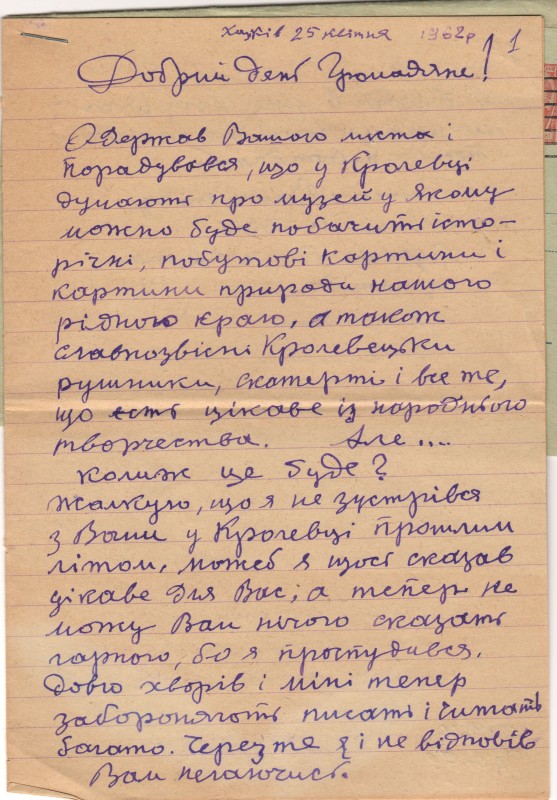 Харків 25 квітня 1962р
1
Добрий день Громадяне!
Одержав Вашого листа і
порадувався, що у Кролевці
думають про музей у якому
можно буде побачить істо-
річні, побутові картини і
картини природи нашого
рідного краю, а також
славнозвісні Кролевецьки
рушники, скатерті і все те,
що есть цікаве із народнього
творчества. Але ....
колиж це буде?
Жалкую, що я не зустрівся
з Вами у Кролевці прошлим
літом, можеб я щось сказав
цікаве для Вас, а тепер не
можу Вам нічого сказать
гарного, бо я простудився.
Довго хворів і міні тепер
забороняють писать і читать
багато. Через те я і не відповів
Вам негаючись.